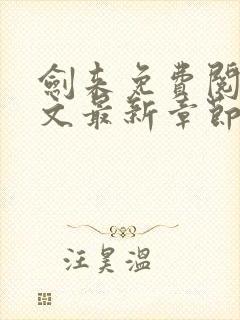 劍来免費閱
文最新章節
汪昊溫